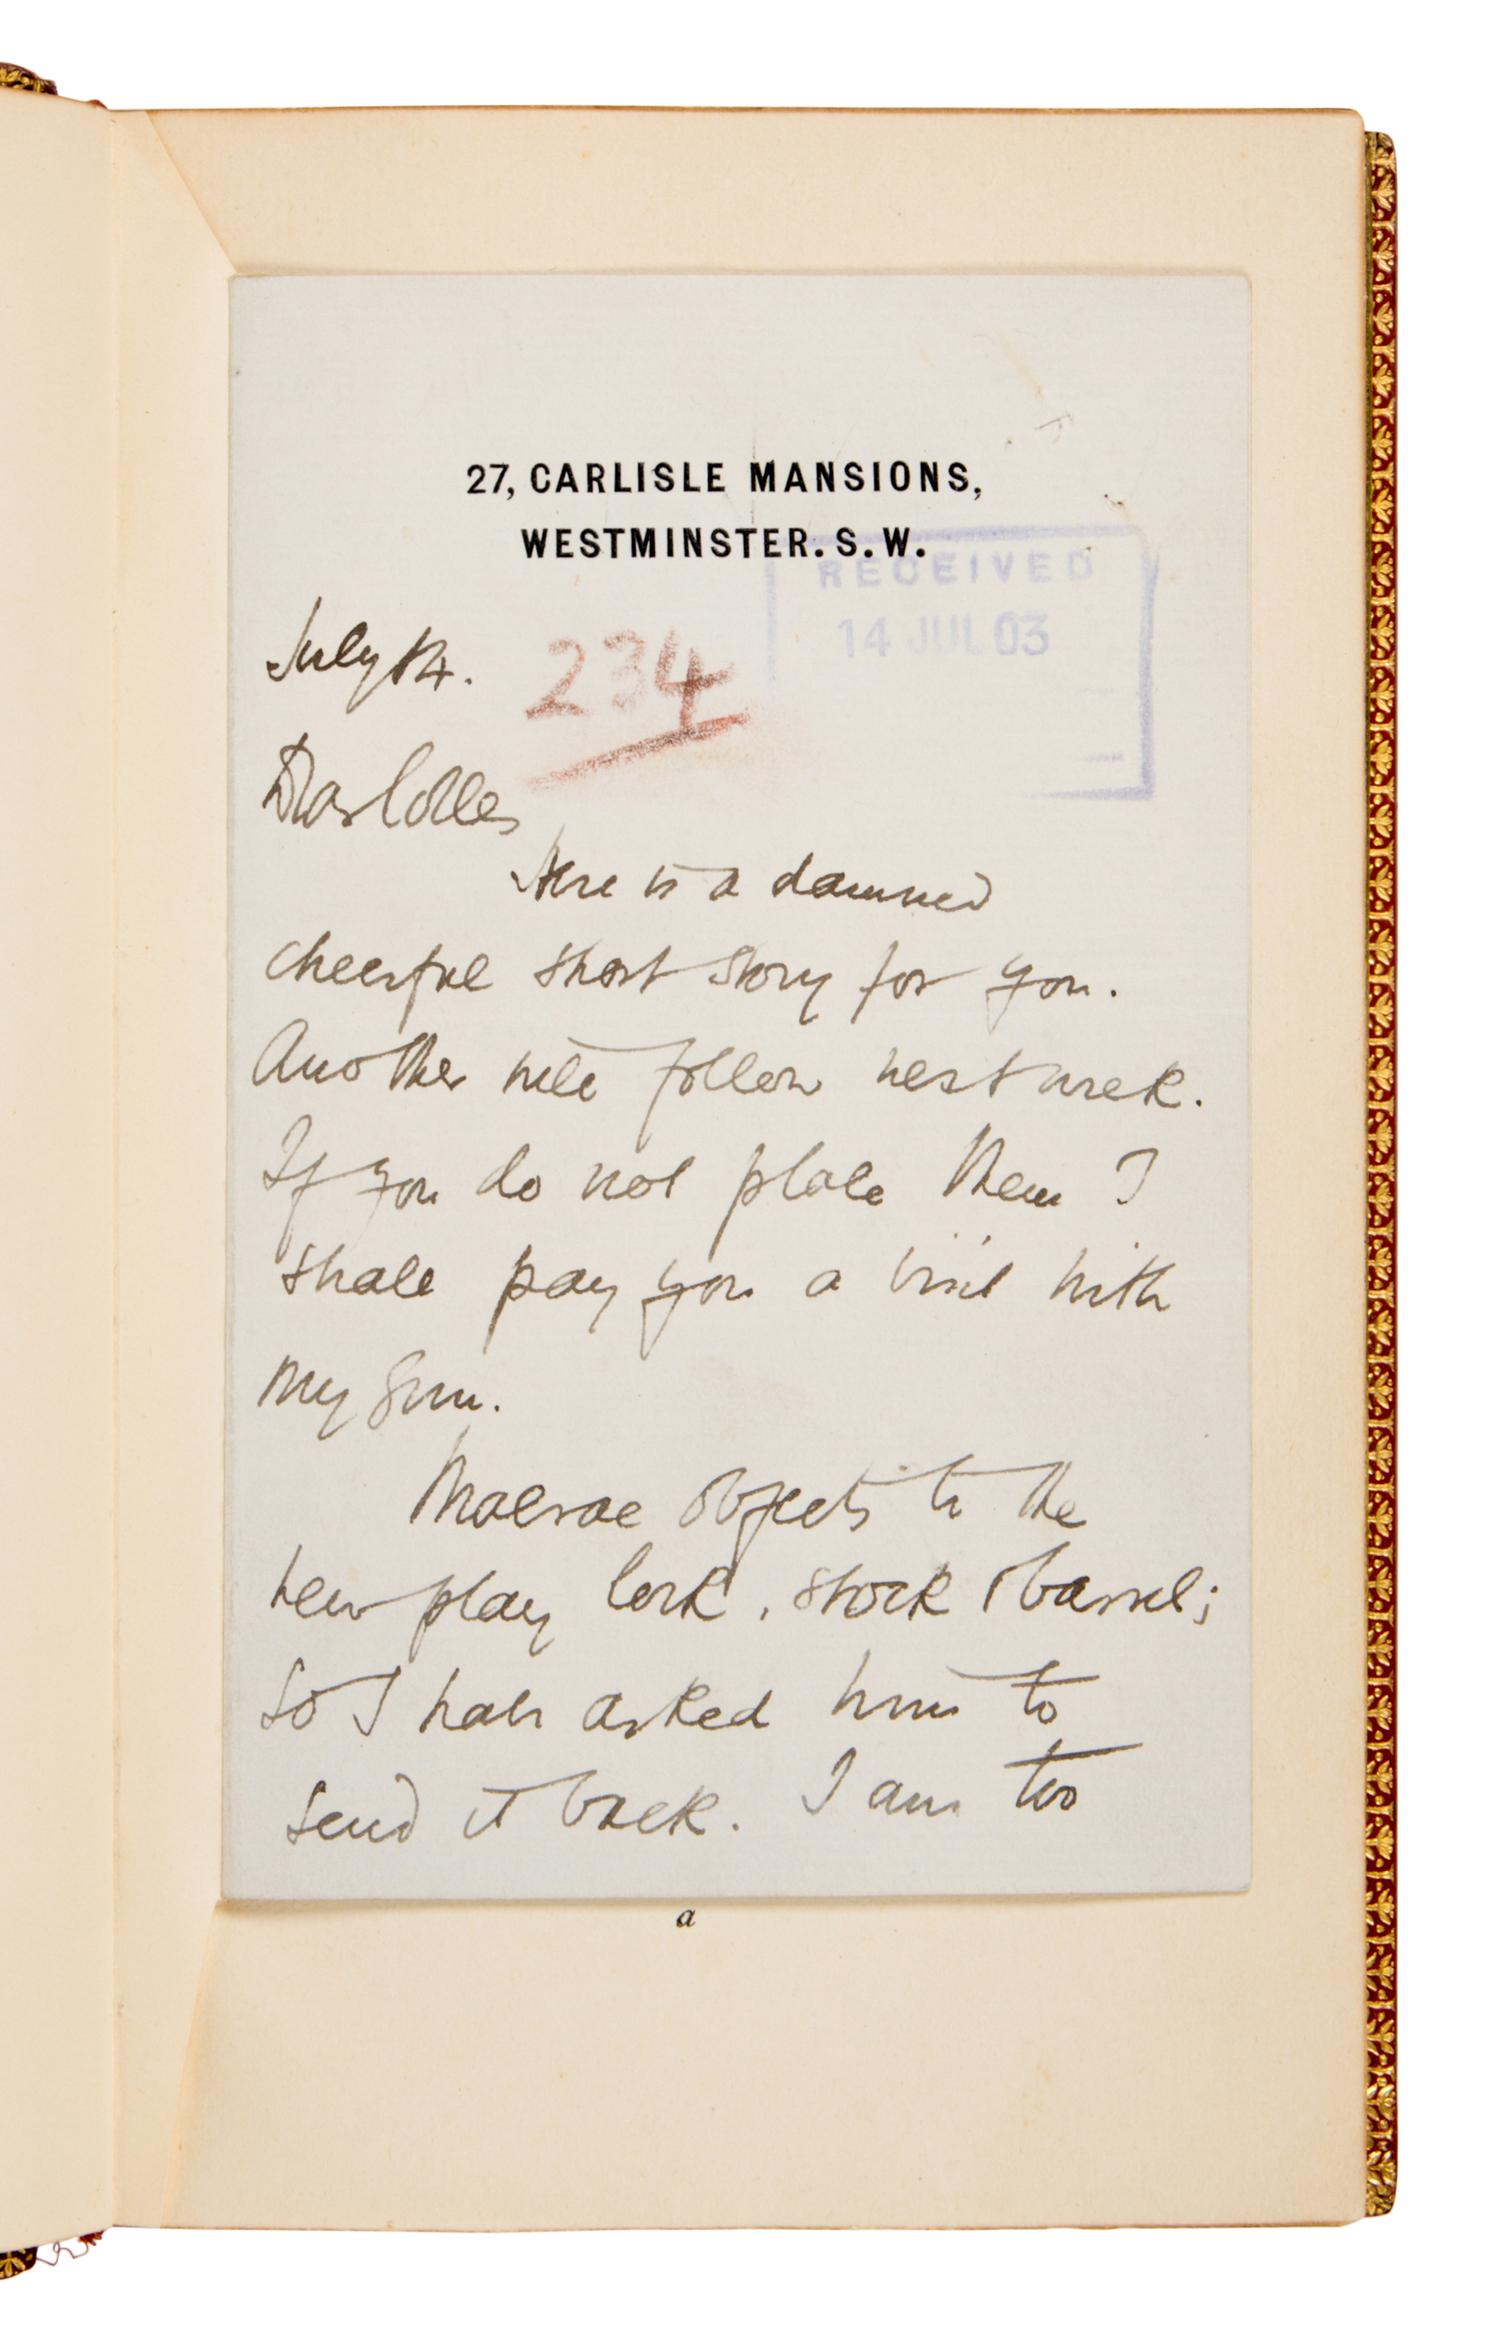 27, CARLISLE MANSIONS,
WESTMINSTER. S. W.
RECEIVED
14 JUL 03
July 14.
234
Dear Colles
Here is a damned
cheerful short story for you.
Another will follow next week.
If you do not place them I
shall pay you a visit with
my gun.
objects to the
new play lock, stock & barrel;
So I have asked him to
send it back. I am too
a